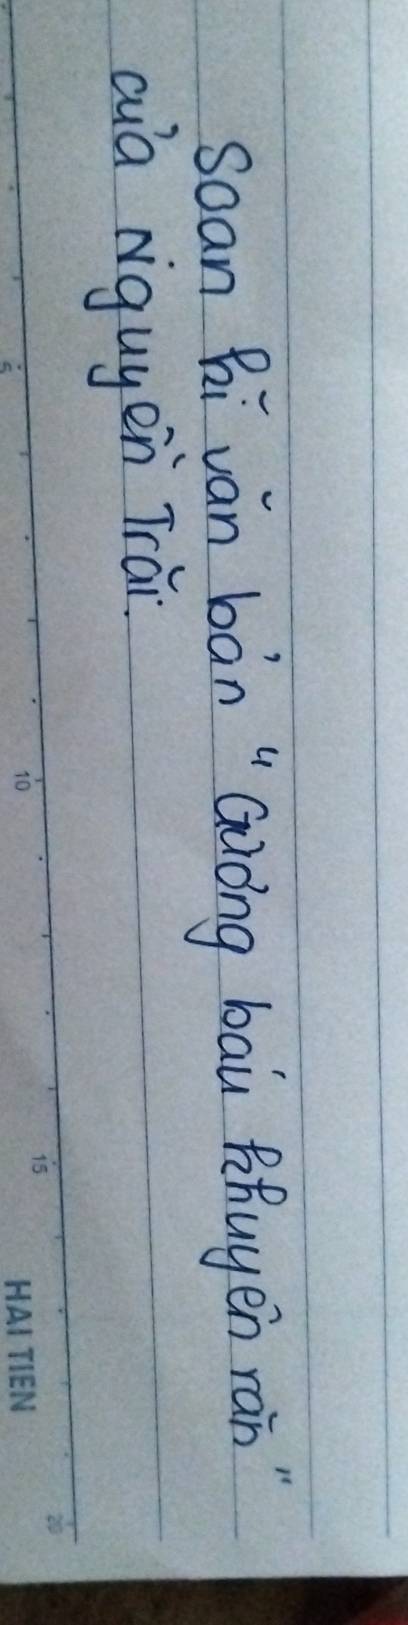 Soạn kĩ văn bản "Gương báu khuyên răn"
của Nguyễn Trãi.
5
10
15
20
HAI TIEN